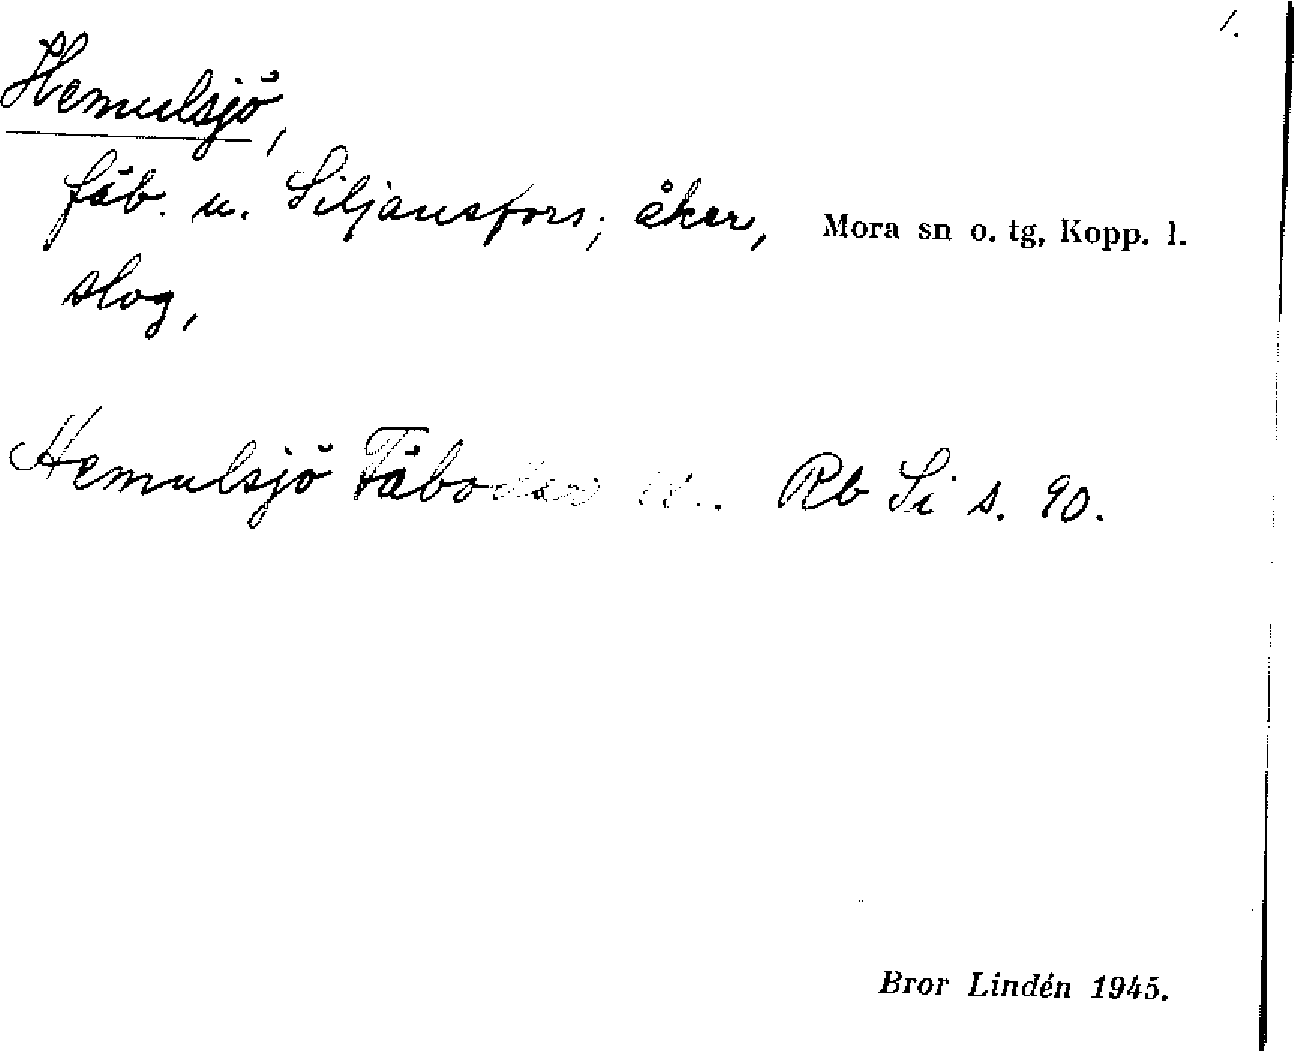 1.
Hemulsjö,
fäb. u. Siljansfors; åker, Mora sn o. tg, Kopp. l.
slog,
Hemulsjö Fäboder Rb Si s. 90.
Bror Lindén 1945.